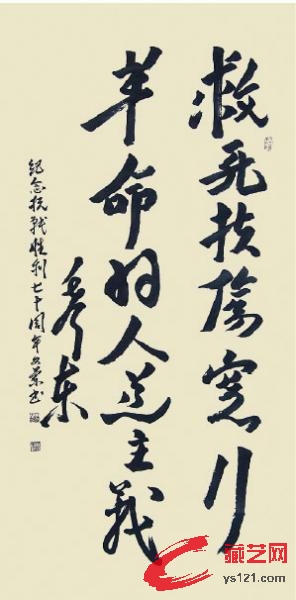 救死扶傷實行
革命的人道主義
毛泽东
紀念抗戰勝利七十周年
藏艺网
ys121.com